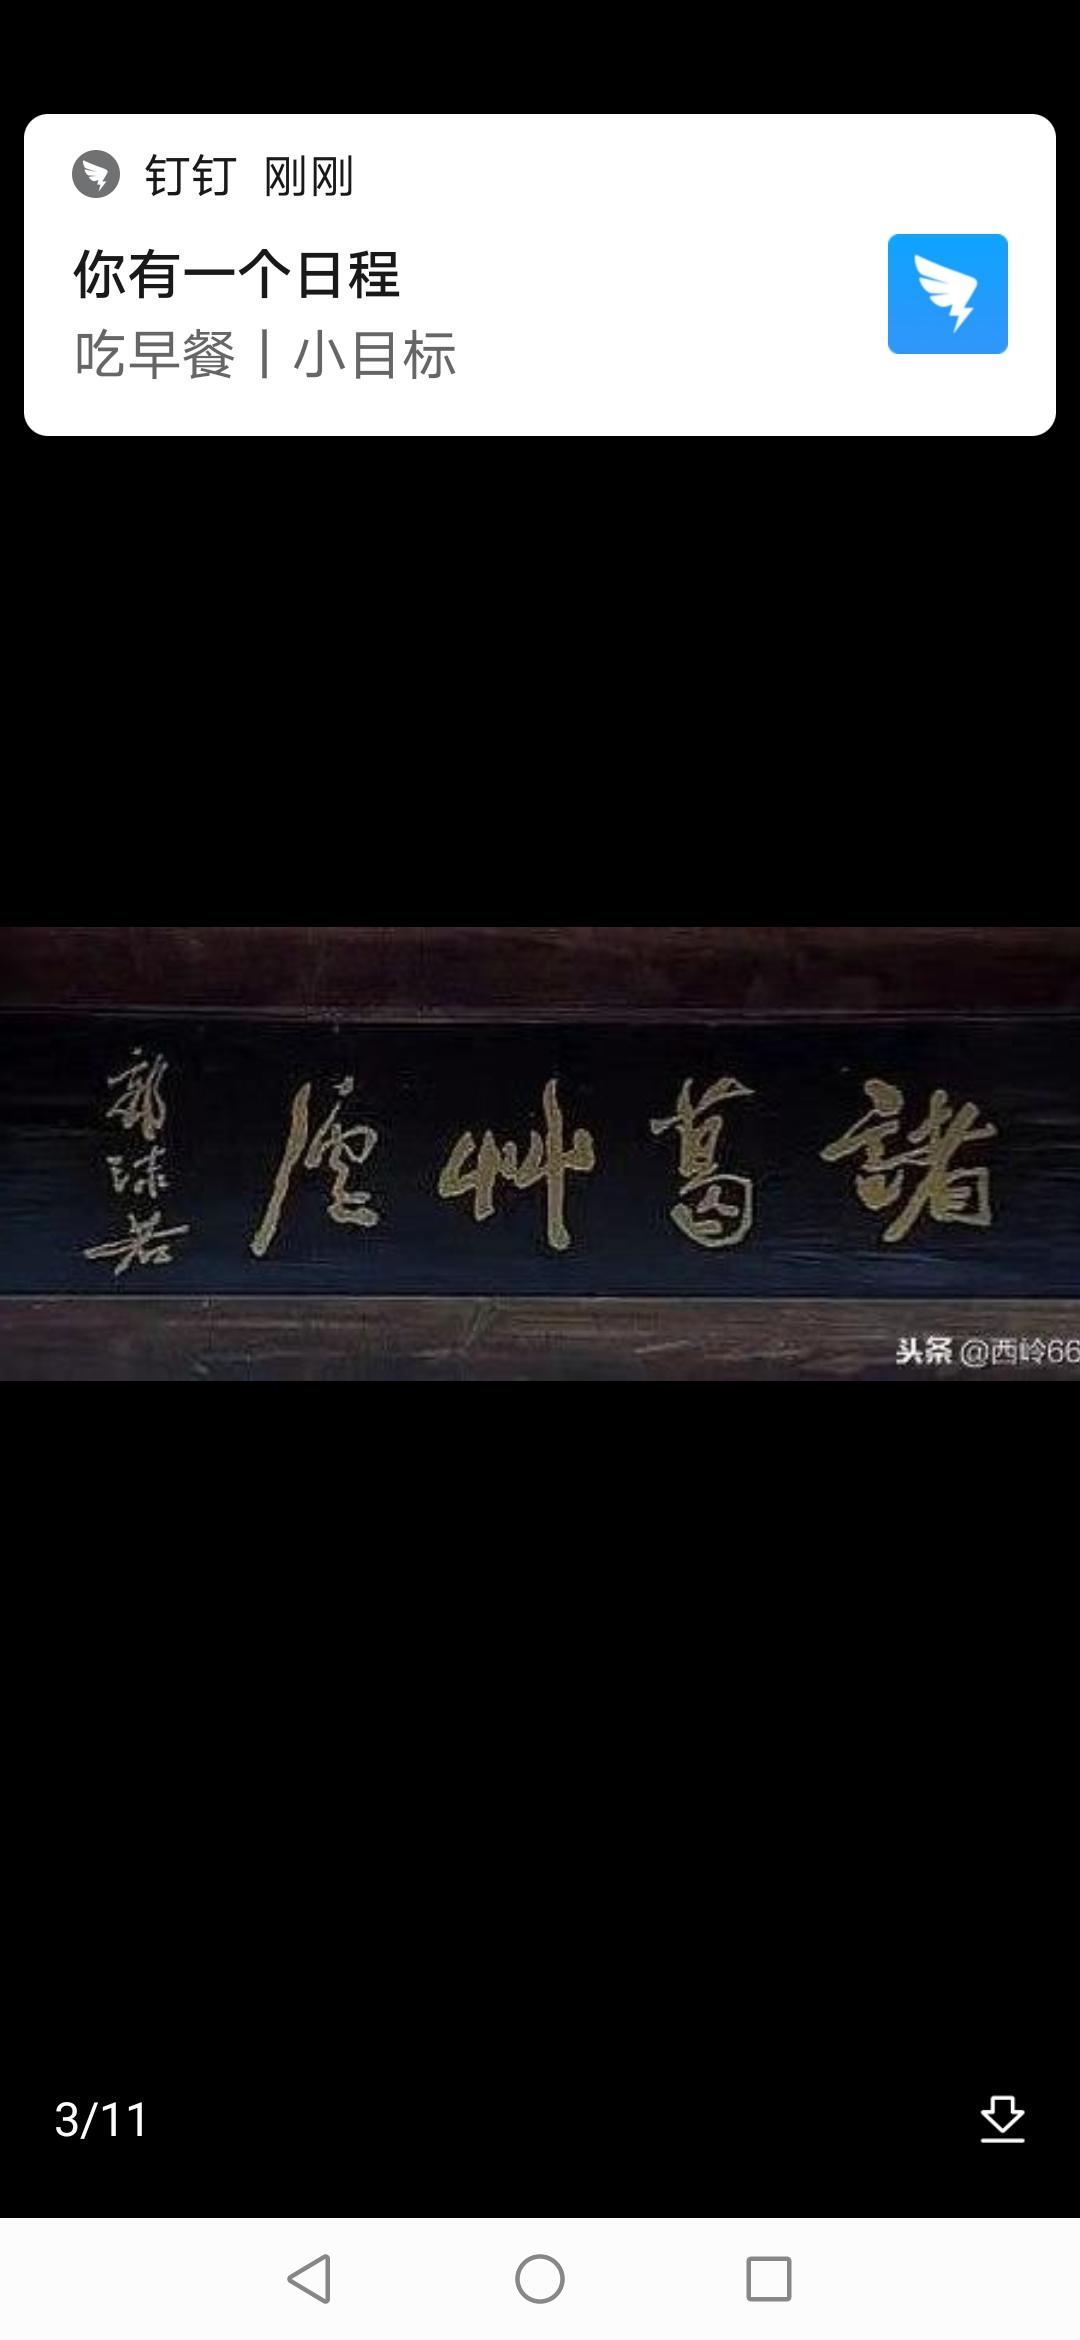 钉钉 刚刚
你有一个日程
吃早餐丨小目标
諸葛艸廬
郭沫若
头条 @西岭66
3/11